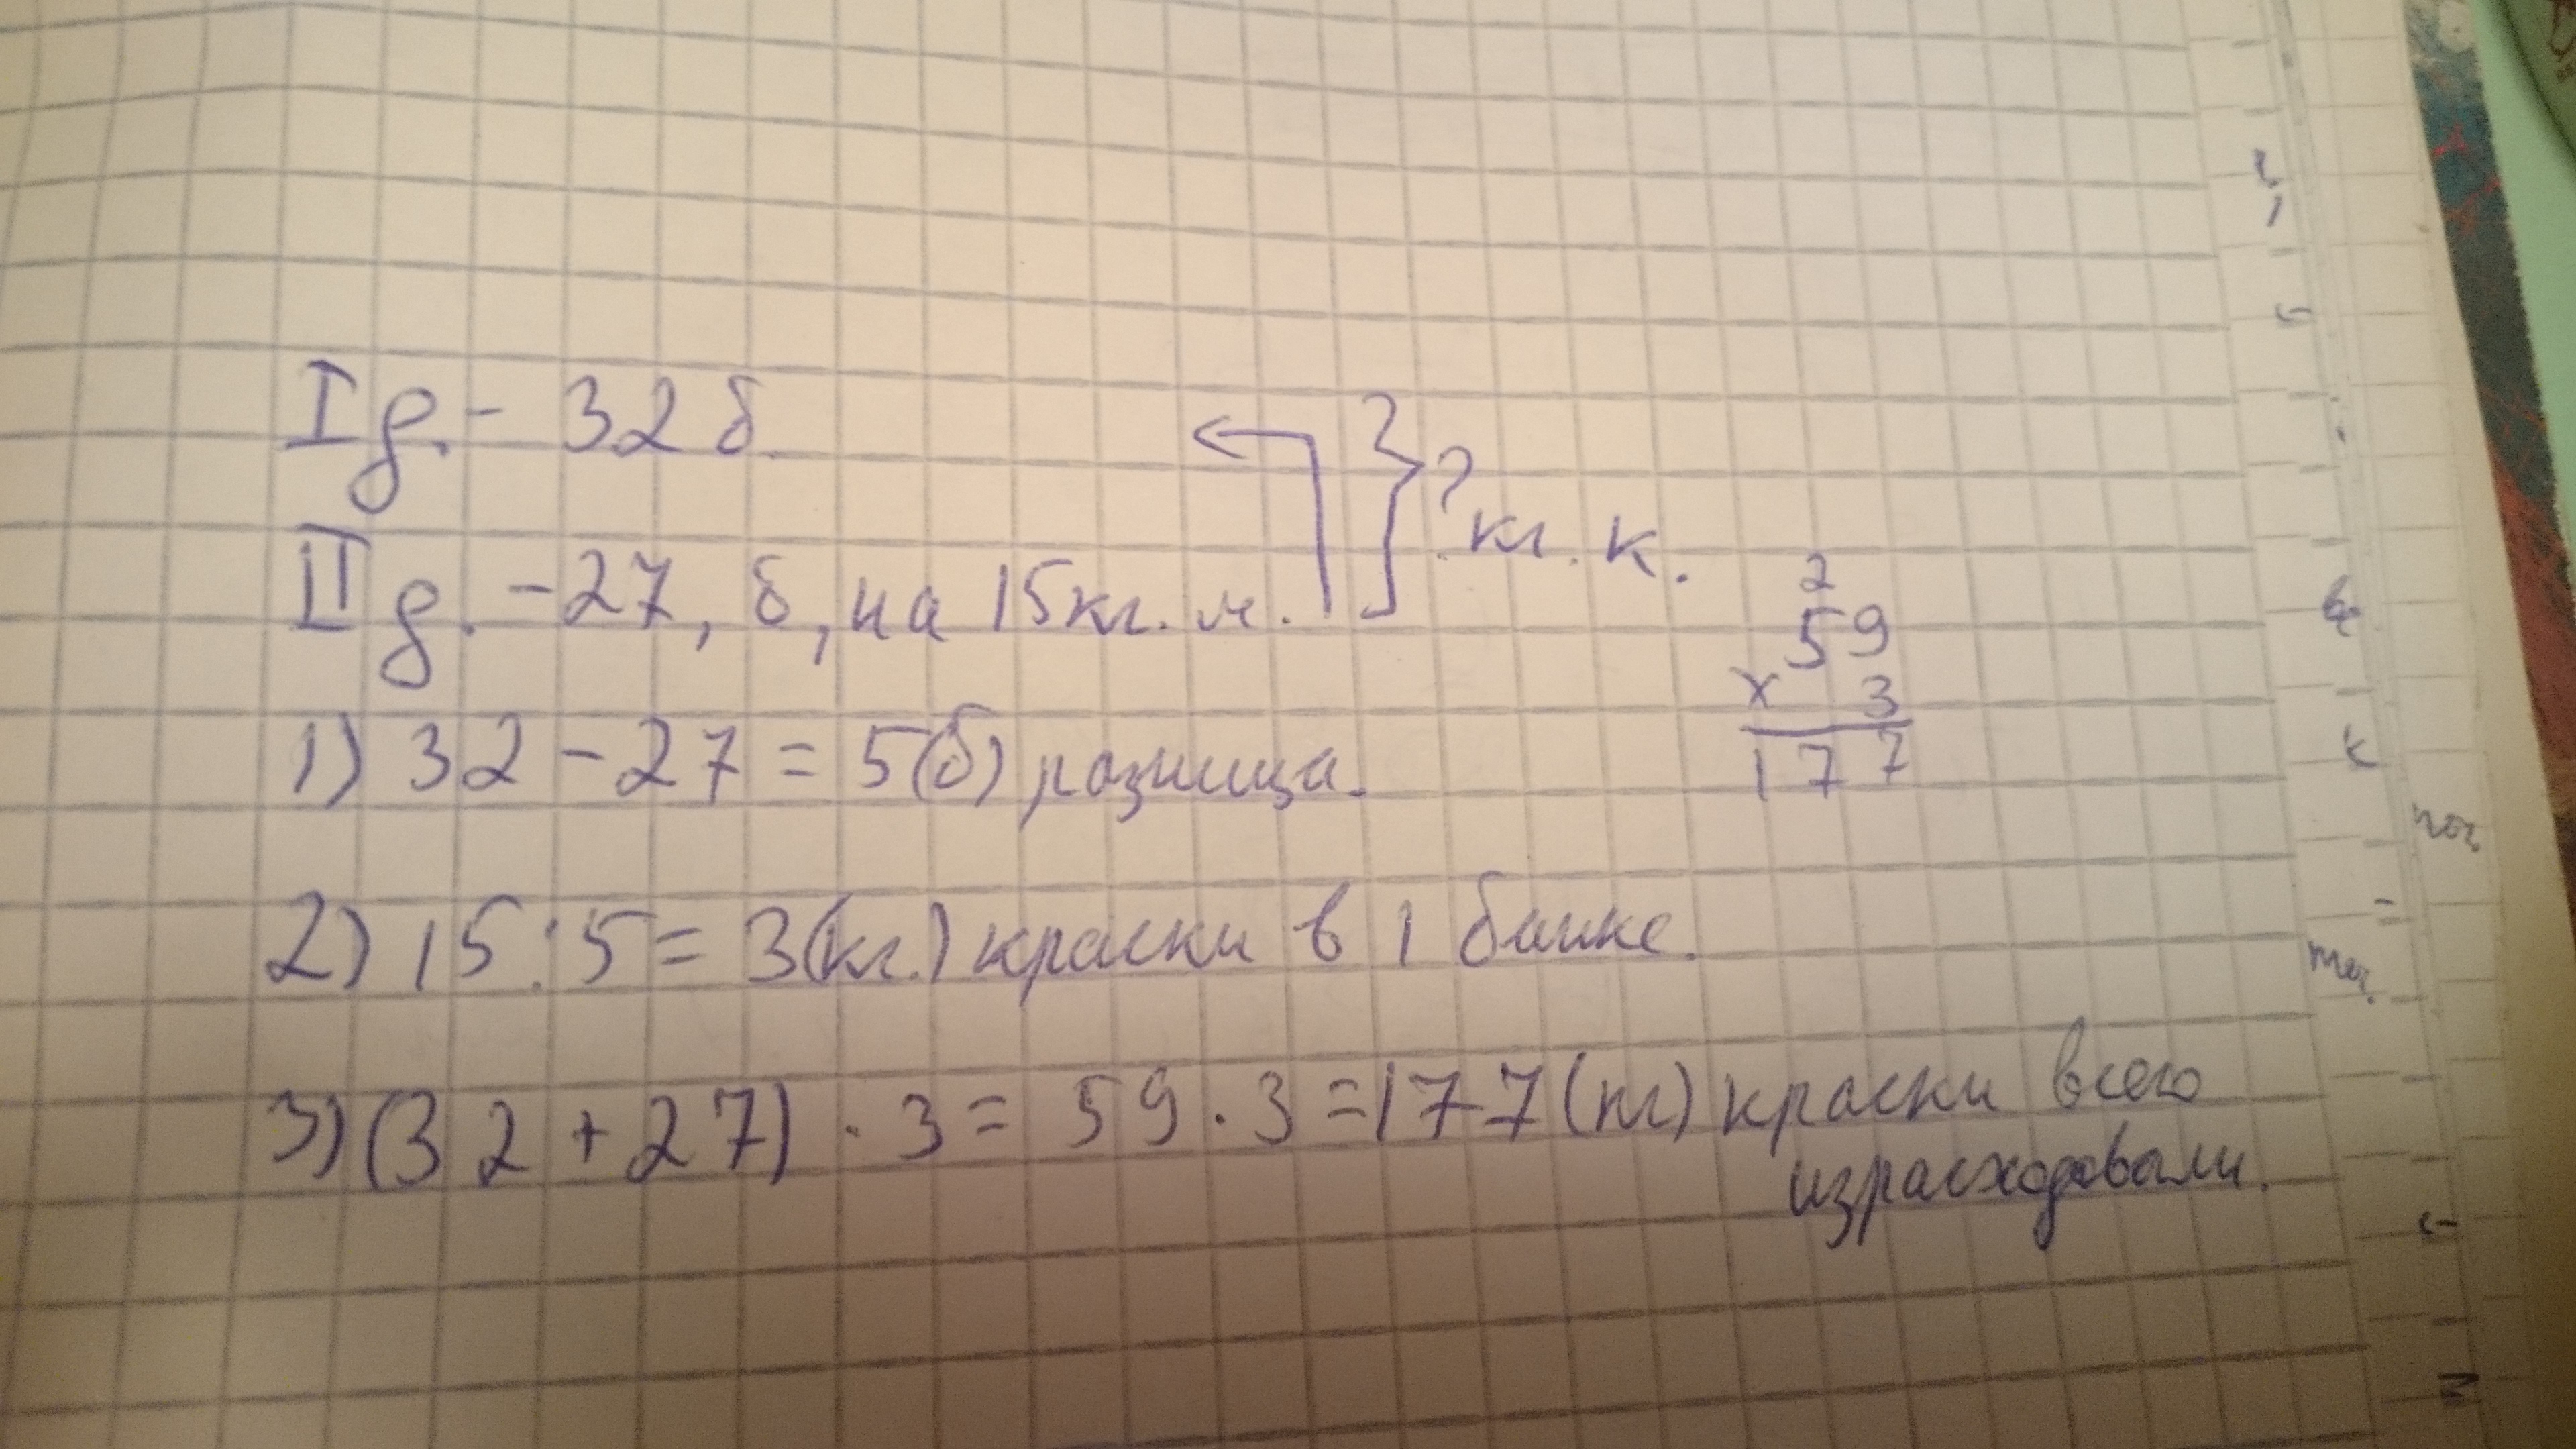 I д. - 32 б.
II д. - 27, б, на 15 кг. м.
? кг. к.
2
59
× 3
177
1) 32 - 27 = 5 (б) разница.
2) 15 : 5 = 3 (кг.) краски в 1 банке.
3) (32 + 27) · 3 = 59 · 3 = 177 (кг) краски всего
израсходовали.